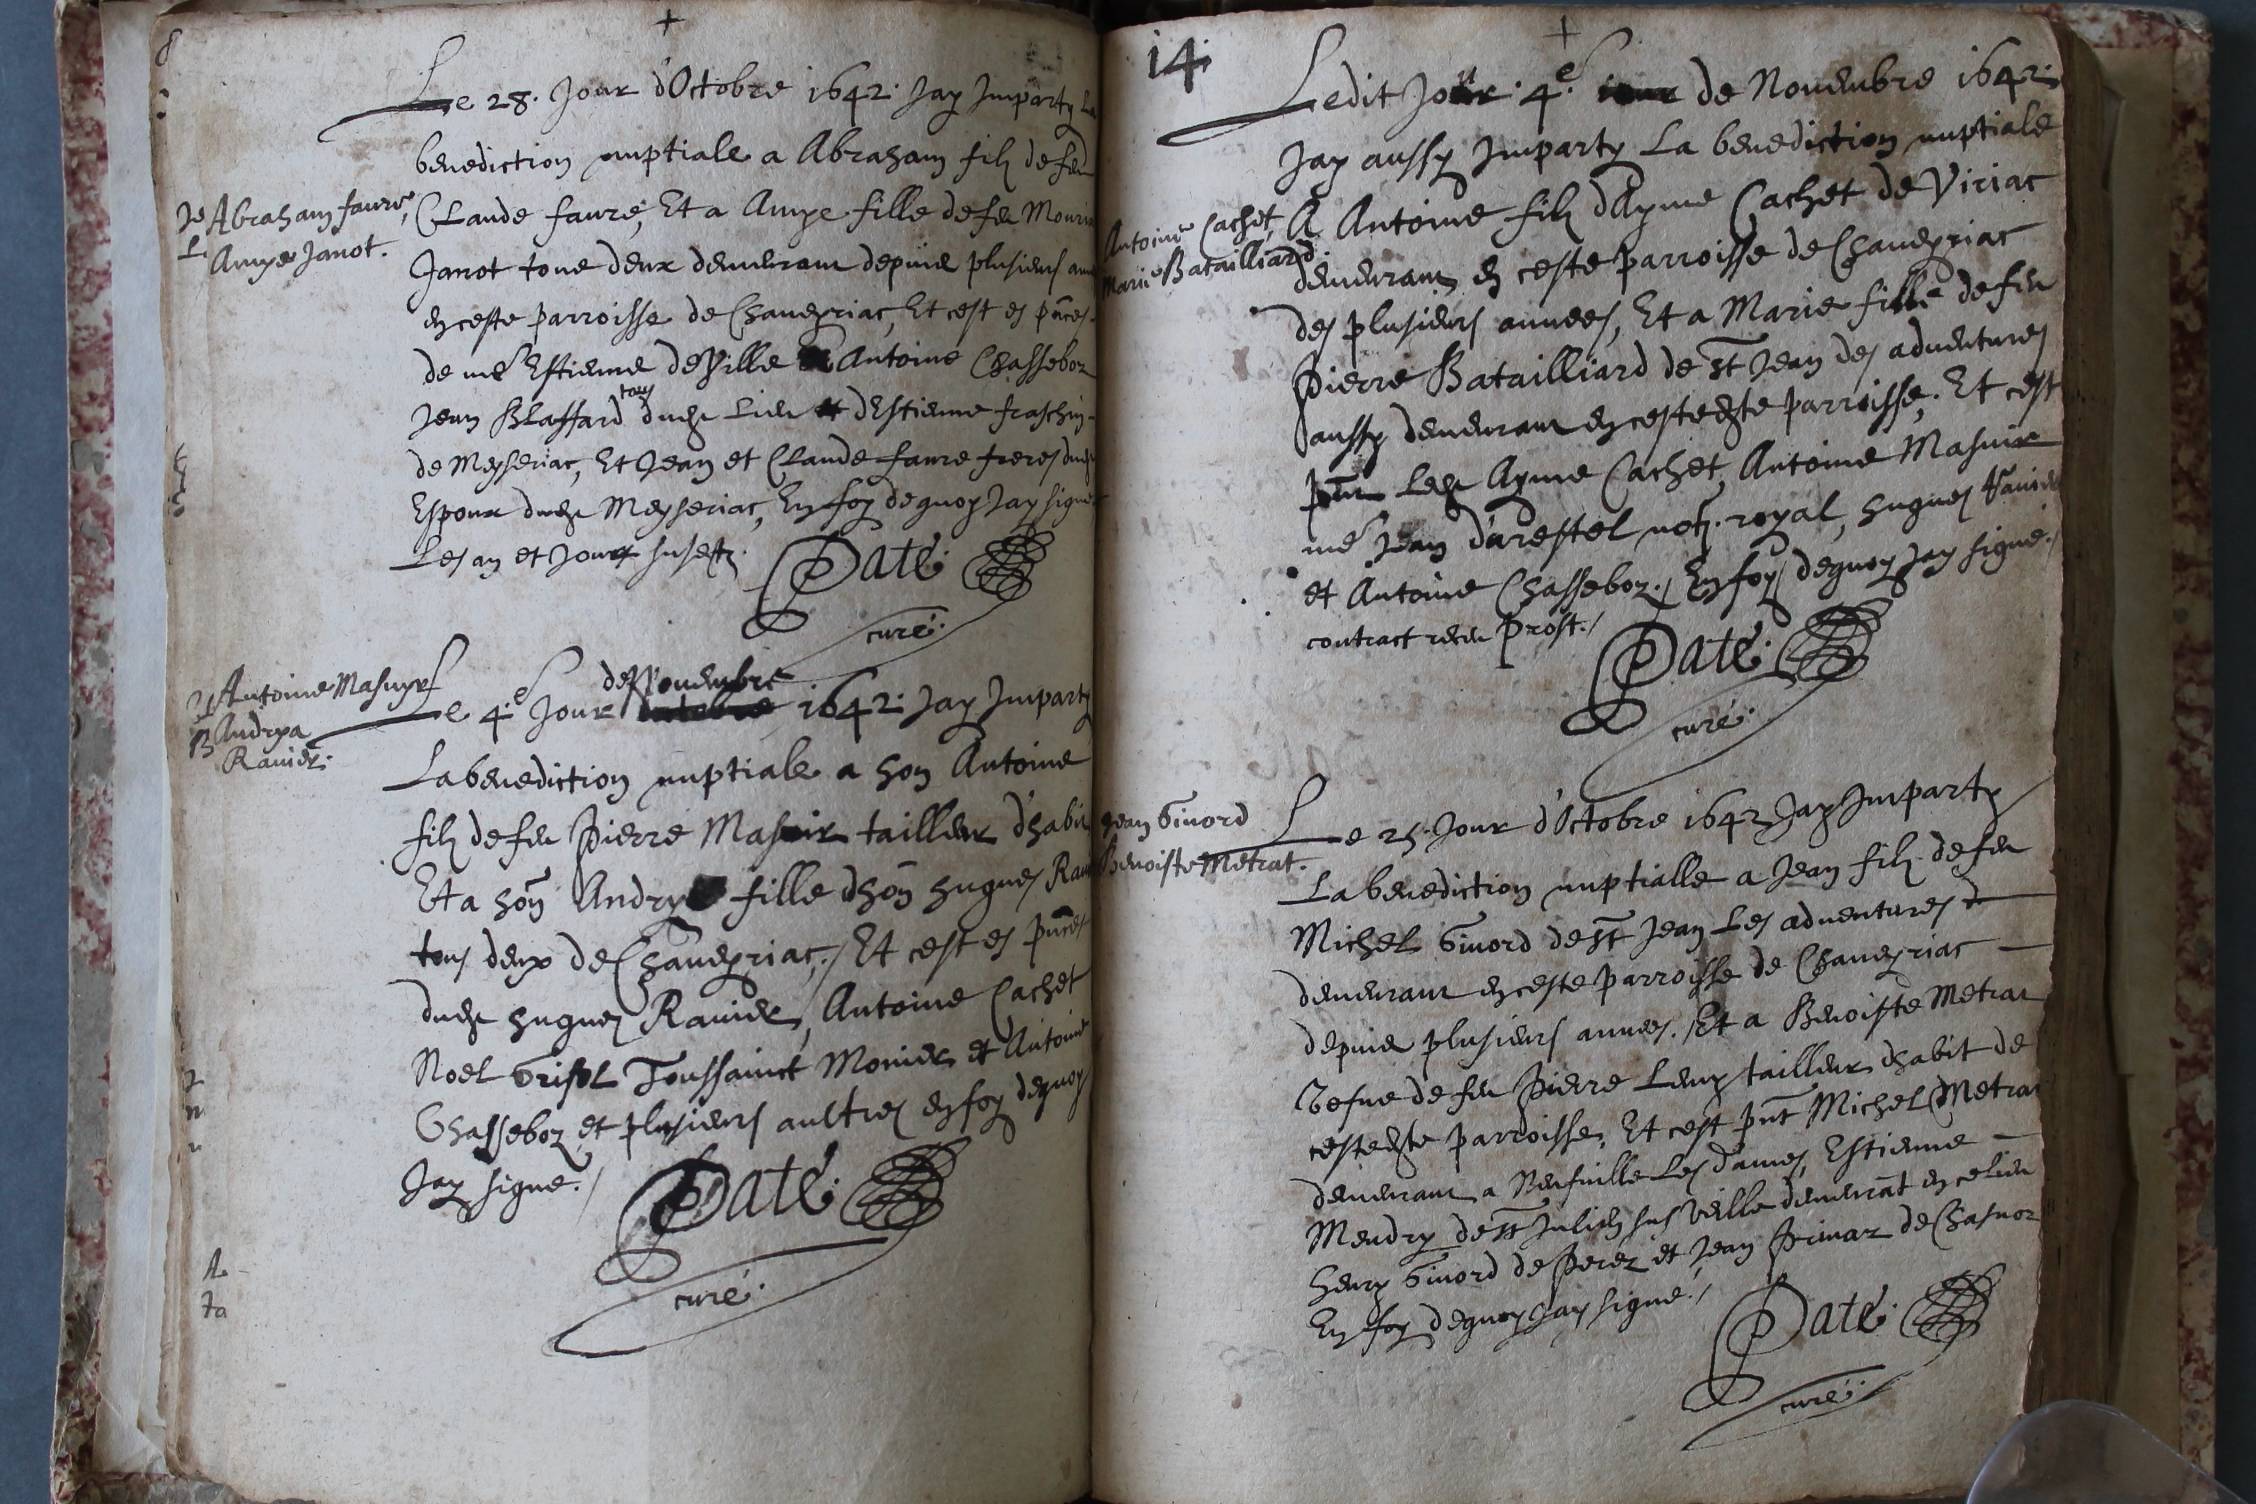 +
Le 28. Jour d'Octobre 1642. Jay Imparty La
benediction nuptiale a Abraham filz de feu
Abraham faure,
Amye Janot.
Claude faure, Et a Amye fille de feu
Janot tous deux demeurant depuis plusieurs
en ceste parroisse de Chaveyriac, Et cest es pnces
de me Estienne deVille Antoine Chasseboz
Jean Blaffard tous dudt Lieu dEstienne fraschin
de Meyseriac, Et Jean et Claude faure freres dudt
Espoux dudt Meyseriac, En foy de quoy Jay signe
Les an et Jour susdtz.
Paté.
curé.
Antoine Masuyr
Andrya
Ravier.
Le 4.e Jour de Novembre 1642. Jay Imparty
La benediction nuptiale a hon Antoine
filz de feu Pierre Masuir tailleur d'habit
Et a hon Andrya fille d'hon hugues
tous deux de Chaveyriac./ Et cest es pnces
dudt hugues Ravier, Antoine Cachet
Noel Grisol Toussainct Monier et Antoine
Chasseboz et plusieurs aultres en foy de quoy
Jay signe./
Paté.
curé.
14.
+
Ledit Jour 4.e de Novembre 1642.
Jay aussy Imparty La benediction nuptiale
Antoine Cachet,
Marie Batailliard.
A Antoine filz d'Ayme Cachet de Viriac
demeurant en ceste parroisse de Chaveyriac
des plusieurs annees, Et a Marie fille de feu
Pierre Batailliard de St Jean des adventures
aussy demeurant en ceste dte parroisse, Et cest
pnt Ledt Ayme Cachet, Antoine Masuir
me Jean d'arestel notz. royal, hugues
et Antoine Chasseboz./ En foy de quoy Jay signe./
contract receu Prost./
Paté.
curé.
Jean Givord
Benoiste Metrat.
Le 25. Jour d'Octobre 1642 Jay Imparty
La benediction nuptialle a Jean filz de feu
Michel Givord de St Jean Les adventures
demeurant en ceste parroisse de Chaveyriac
depuis plusieurs annees./ Et a Benoiste Metrat
Vefve de feu Pierre Leuy tailleur d'habit de
ceste dte parroisse, Et cest pnt Michel Metrat
demeurant a Neufville Les dames, Estienne
Mendry de St Julien sus Veille demeurat en ce lieu
henry Givord de Perez et Jean Primaz de
En foy de quoy Jay signe./
Paté.
curé.